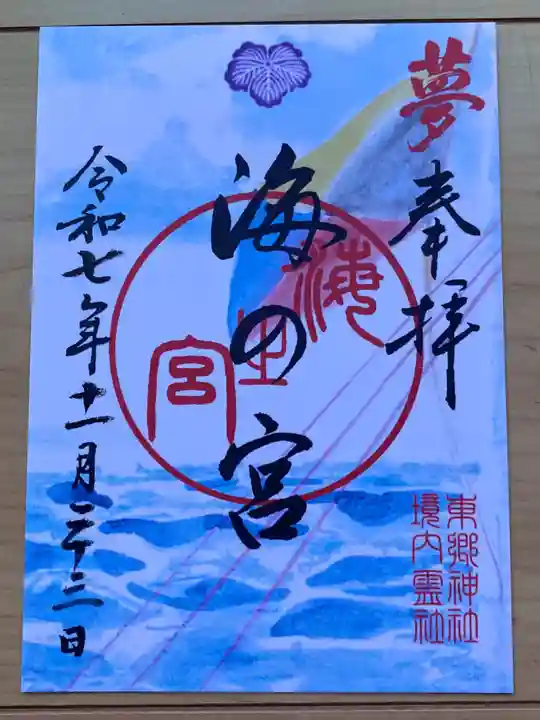 夢
奉拝
海の宮
海之宮
東郷神社
境内霊社
令和七年十一月二十三日